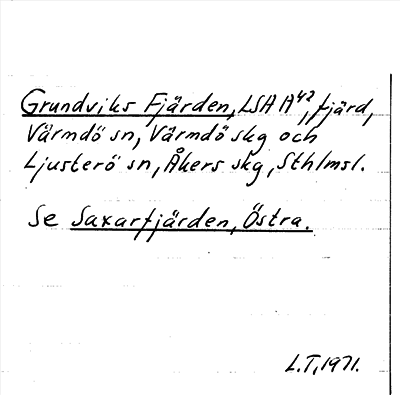 Grundviks Fjärden, LSA A42, fjärd,
Värmdö sn, Värmdö skg och
Ljusterö sn, Åkers skg, Sthlmsl.
Se Saxarfjärden, Östra.
L.T, 1971.